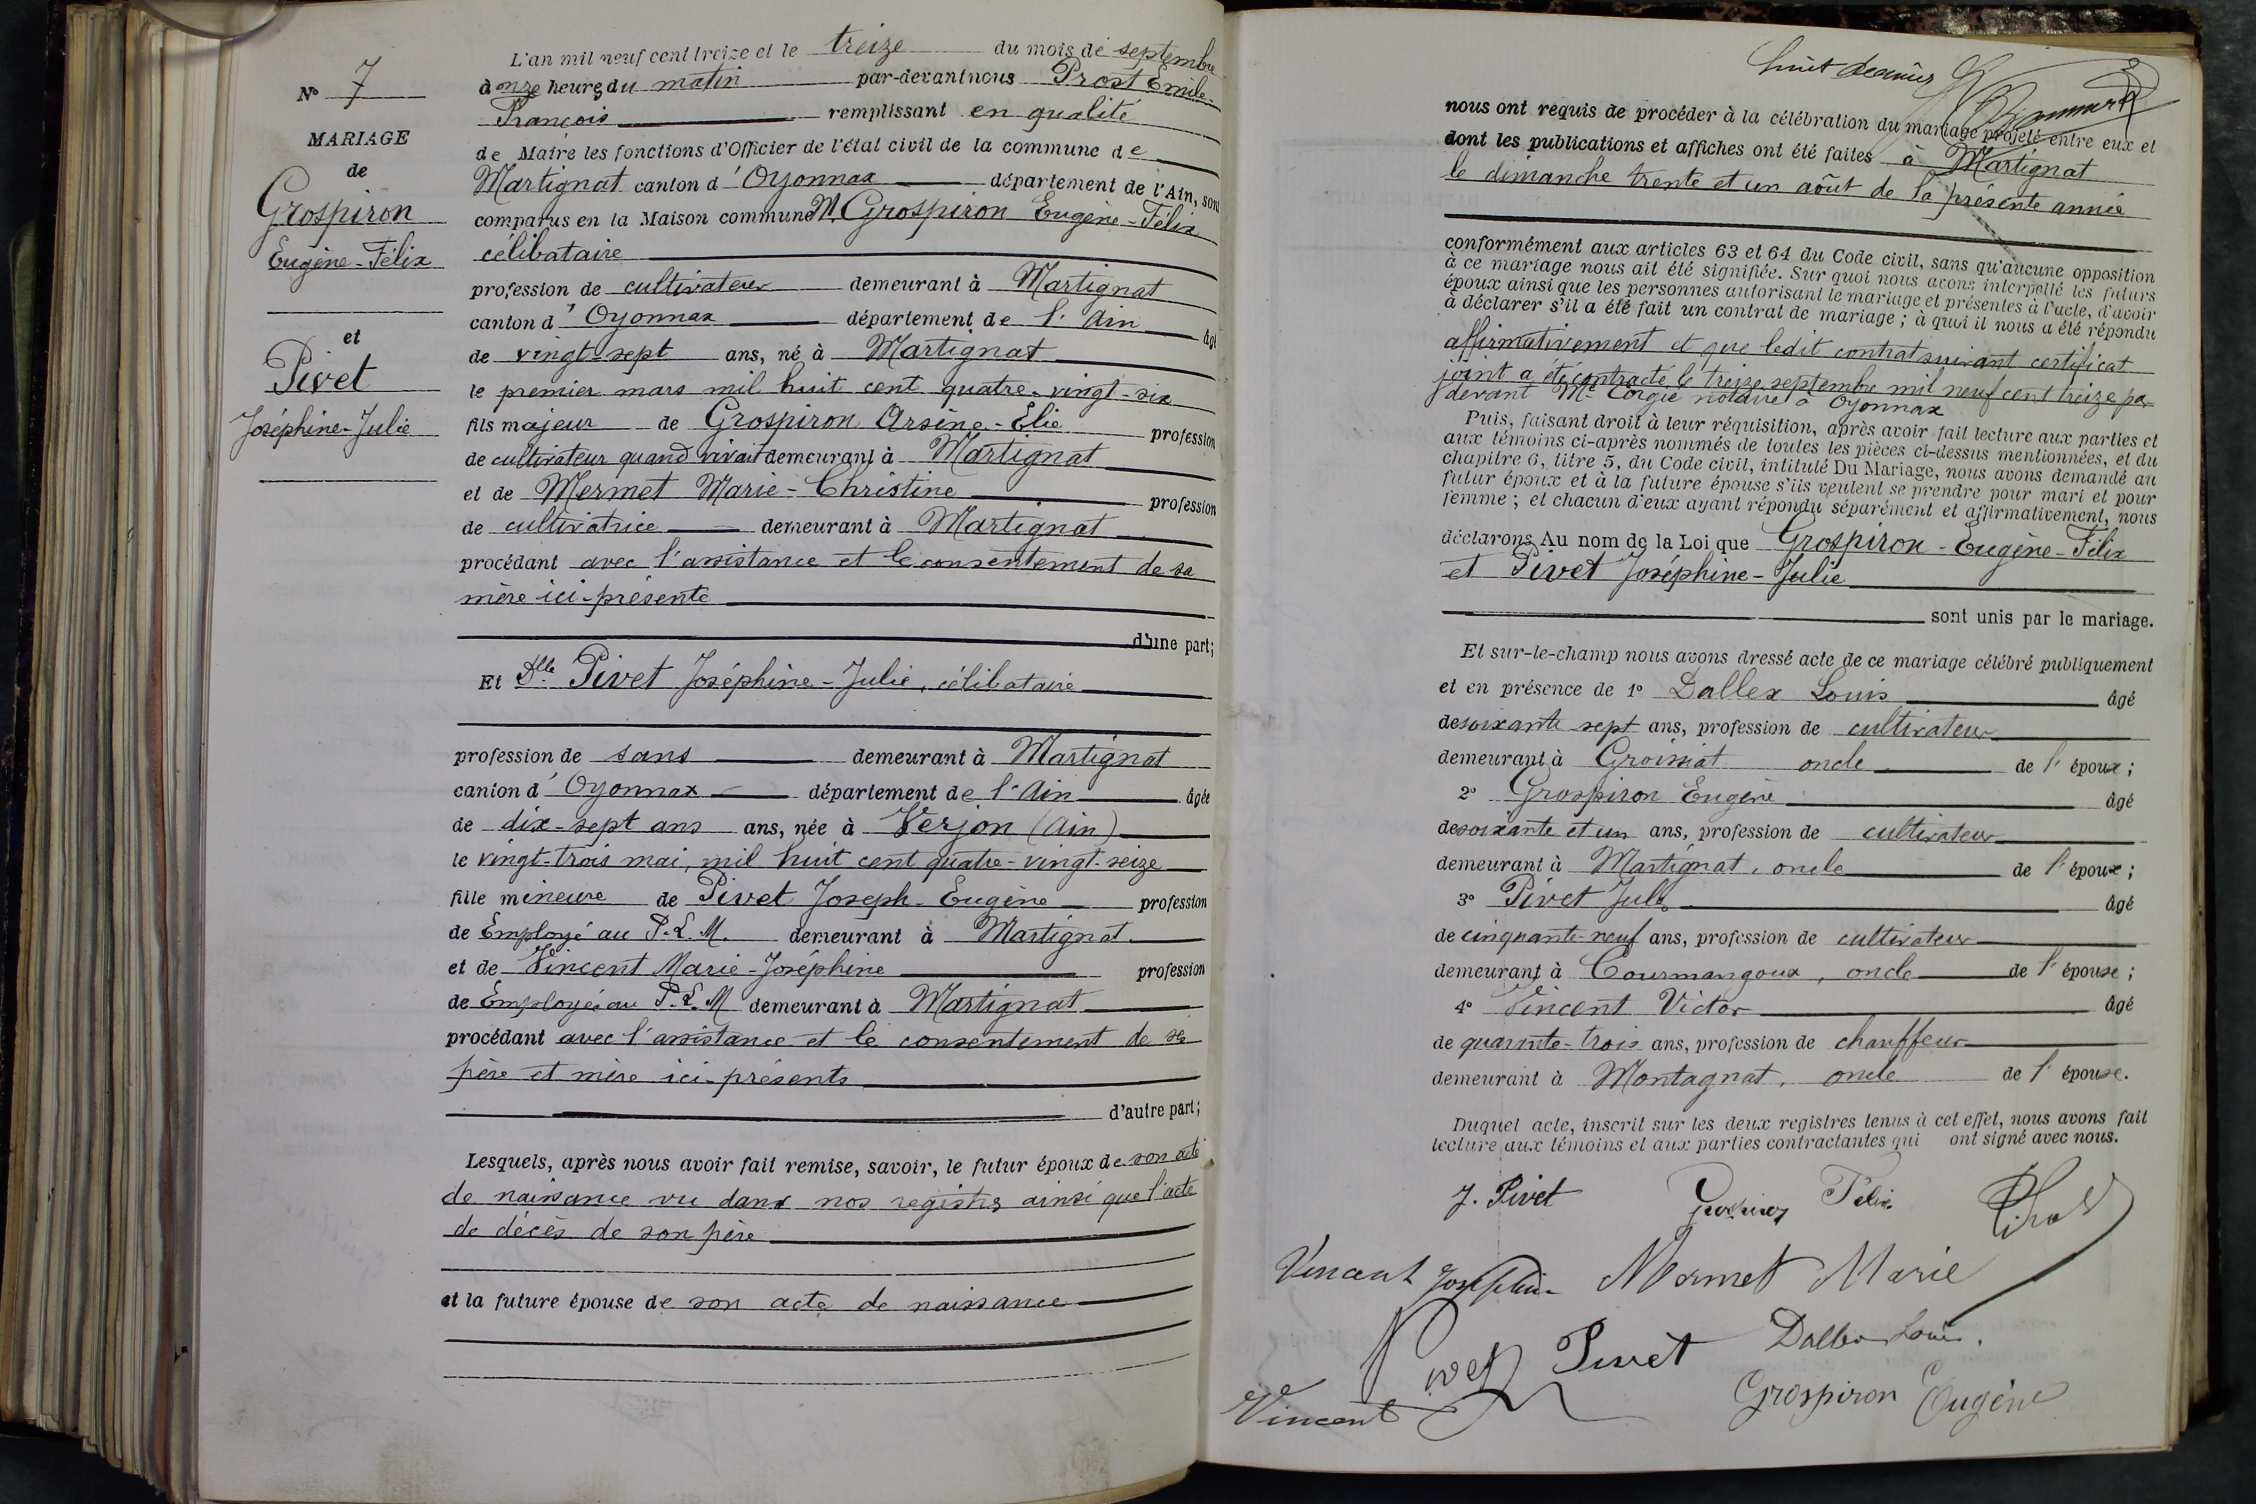 N° 7
MARIAGE
de
Grospiron
Eugène-Félix
et
Pivet
Joséphine-Julie
L'an mil neuf cent treize et le treize du mois de septembre
à onze heures du matin par-devant nous Prost Emile-
François remplissant en qualité
de Maire les fonctions d'Officier de l'état civil de la commune de
Martignat canton d'Oyonnax département de l'Ain, sont
comparus en la Maison commune M. Grospiron Eugène-Félix
célibataire
profession de cultivateur demeurant à Martignat
canton d'Oyonnax département de l'Ain âgé
de vingt-sept ans, né à Martignat
le premier mars mil huit cent quatre-vingt-six
fils majeur de Grospiron Arsène-Elie profession
de cultivateur quand vivait demeurant à Martignat
et de Mermet Marie-Christine profession
de cultivatrice demeurant à Martignat
procédant avec l'assistance et le consentement de sa
mère ici-présente
d'une part;
Et Dlle Pivet Joséphine-Julie, célibataire
profession de sans demeurant à Martignat
canton d'Oyonnax département de l'Ain âgée
de dix-sept ans ans, née à Verjon (Ain)
le vingt-trois mai, mil huit cent quatre-vingt-seize
fille mineure de Pivet Joseph-Eugène profession
de Employé au P.L.M. demeurant à Martignat
et de Vincent Marie-Joséphine profession
de Employée au P.L.M demeurant à Martignat
procédant avec l'assistance et le consentement de ses
père et mère ici-présents
d'autre part;
Lesquels, après nous avoir fait remise, savoir, le futur époux de son acte
de naissance vu dans nos registres ainsi que l'acte
de décès de son père
et la future épouse de son acte de naissance
huit
nous ont requis de procéder à la célébration du mariage projeté entre eux et
dont les publications et affiches ont été faites à Martignat
le dimanche trente et un août de la présente année
conformément aux articles 63 et 64 du Code civil, sans qu'aucune opposition
à ce mariage nous ait été signifiée. Sur quoi nous avons interpellé les futurs
époux ainsi que les personnes autorisant le mariage et présentes à l'acte, d'avoir
à déclarer s'il a été fait un contrat de mariage; à quoi il nous a été répondu
affirmativement et que ledit contrat suivant certificat
joint a été contracté le treize septembre mil neuf cent treize par
devant Me Corgié notaire à Oyonnax
Puis, faisant droit à leur réquisition, après avoir fait lecture aux parties et
aux témoins ci-après nommés de toutes les pièces ci-dessus mentionnées, et du
chapitre 6, titre 5, du Code civil, intitulé Du Mariage, nous avons demandé au
futur époux et à la future épouse s'ils veulent se prendre pour mari et pour
femme; et chacun d'eux ayant répondu séparément et affirmativement, nous
déclarons Au nom de la Loi que Grospiron-Eugène-Félix
et Pivet Joséphine-Julie
sont unis par le mariage.
Et sur-le-champ nous avons dressé acte de ce mariage célébré publiquement
et en présence de 1° Dallex Louis âgé
de soixante sept ans, profession de cultivateur
demeurant à Groissiat oncle de l'époux;
2° Grospiron Eugène âgé
de soixante et un ans, profession de cultivateur
demeurant à Martignat, oncle de l'époux;
3° Pivet Jules âgé
de cinquante-neuf ans, profession de cultivateur
demeurant à Courmangoux, oncle de l'épouse;
4° Vincent Victor âgé
de quarante-trois ans, profession de chauffeur
demeurant à Montagnat, oncle de l'épouse.
Duquel acte, inscrit sur les deux registres tenus à cet effet, nous avons fait
lecture aux témoins et aux parties contractantes qui ont signé avec nous.
J. Pivet Grospiron Félix
Vincent Joséphine Mermet Marie
Pivet Pivet Dallex Louis.
Vincent Grospiron Eugène